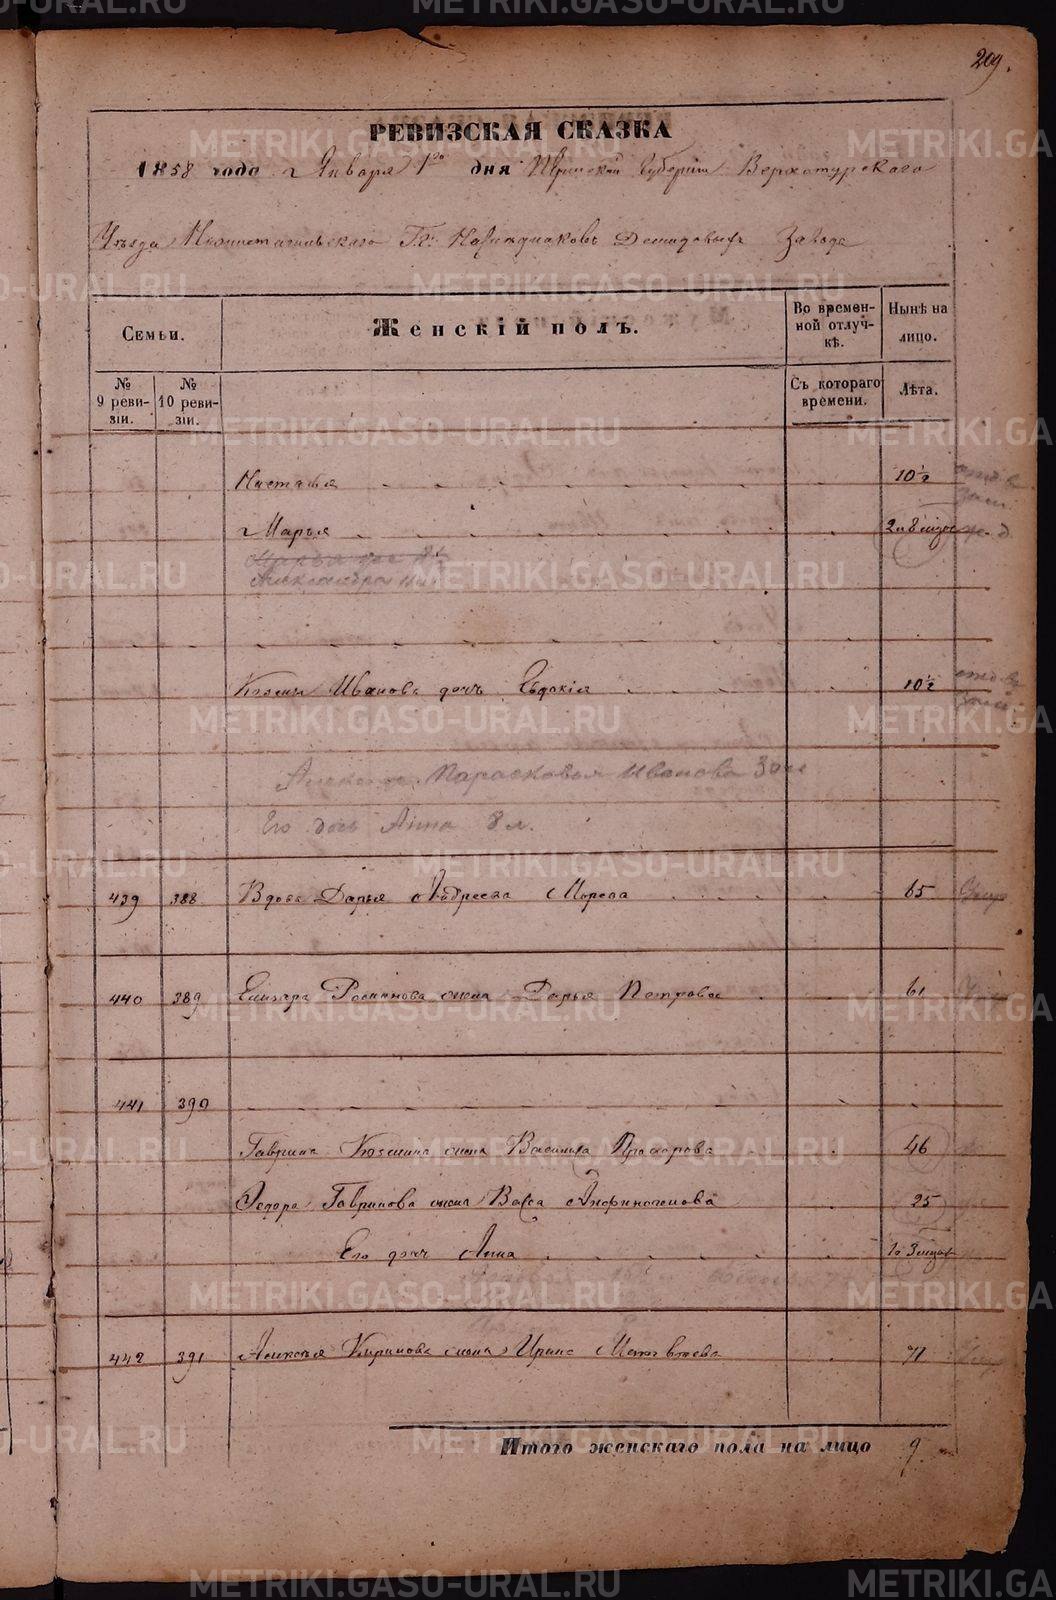 209.
РЕВИЗСКАЯ СКАЗКА
1858 года Января 1го дня Пермской Губернии Верхотурского
Уезда Нижнетагильского Гг. Наследников Демидовых Завода
Семьи.
Женскій полъ.
Во времен-
ной отлуч-
кѣ.
Нынѣ на
лицо.
№
9 реви-
зіи.
№
10 реви-
зіи.
Съ котораго
времени.
Лѣта.
Настасья 10½
Марья 2 и 8 месяц
Александра
Козмы Иванова дочь Евдокія 10½
Парасковья Иванова 30
Его дочь Анна 8 л.
439 388 Вдова Дарья Андреева 65
440 389 Елизара Романова жена Дарья Петрова 61
441 390
Гаврила Козмина жена Василиса Прохорова 46
Федора Гаврилова жена Васса Анфиногенова 25
Его дочь Анна
442 391 Алексея Кирилова жена Ирина Матвеева 71
Итого женскаго пола на лицо 9
METRIKI.GASO-URAL.RU